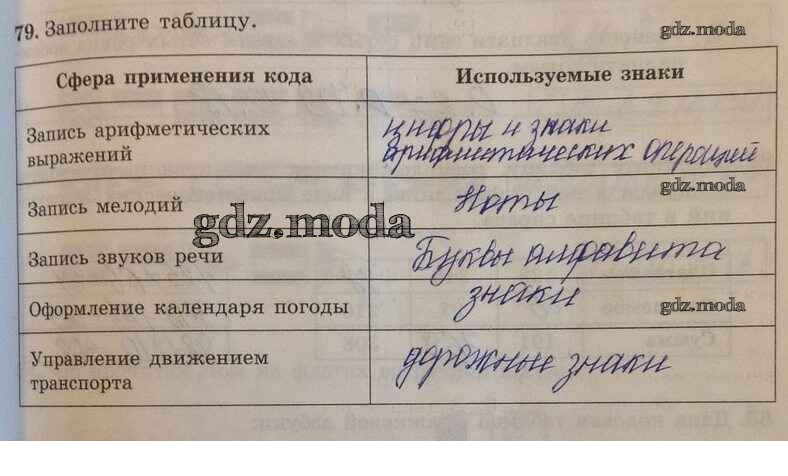 79. Заполните таблицу.
gdz.moda
Сфера применения кода
Используемые знаки
Запись арифметических
выражений
цифры и знаки
арифметических операций
gdz.moda
Запись мелодий
Ноты
gdz.moda
Запись звуков речи
Буквы алфавита
Оформление календаря погоды
знаки
gdz.moda
Управление движением
транспорта
дорожные знаки